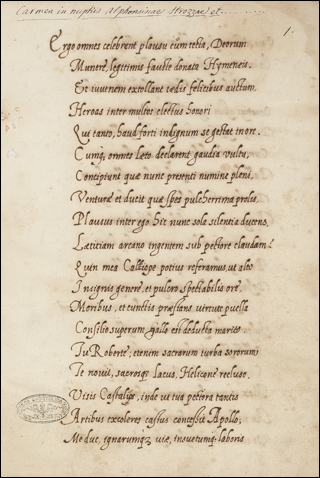 Carmen in nuptiis Alphonsinae Strozzae et............
1.
Ergo omnes celebrent plausu cum tecta, Deorum
Munere, legitimis fauste donata Hymeneis.
Et iuvenem extollant tedis felicibus auctum,
Heroas inter multos electus honori
Qui tanto, haud forti indignum se gestat in ore.
Cumq, omnes læto declarent gaudia vultu,
Concipiunt quæ nunc presenti numine pleni,
Venturæ et ducit quæ spes pulcherrima prolis,
Plausus inter ego hic nunc sola silentia ducens,
Lætitiam arcano ingentem sub pectore claudam?
Quin mea Calliope potius referamus, ut alto
Insignis genere, et pulcro spectabilis ore,
Moribus, et cunctis præstans virtute puella
Consilio superum, gallo est deducta marito
Tu Roberte; etenim sacrarum turba sororum
Te novit, sacrosq lacus, Helicone recluso,
Visis Castalijs, inde ut tua pectora tantis
Artibus excoleres castus concessit Apollo,
Me duc, ignarumque viæ, insuetumq laboris